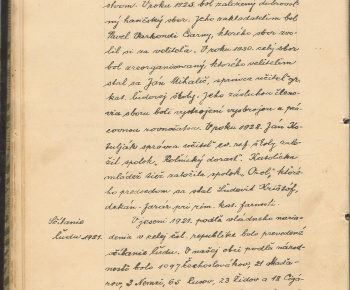 stvom. V roku 1925. bol založený dobrovoľ-
ný hasičský sbor. Jeho zakladateľom bol
Pavel Varkondi Čarný, ktorého sbor zvo-
lil si za veliteľa. V roku 1930. celý sbor
bol zreorganizovaný, ktorého veliteľom
stal sa Ján Mihalič, správca učiteľ gr.
kat. ľudovej školy. Jeho zásluhou členo-
via sboru boli vystrojení výzbrojou a prá-
covnou rovnošatou. V roku 1928. Ján Ko-
tuljak správca učiteľ ev. ref. školy zalo-
žil spolok „Roľnícky dorast“. Katolícka
mládež tiež založila spolok „Orol“, ktoré-
ho predsedom sa stal Ľudevít Krištóf,
dekan-farár pri rím. kat. farnosti.
Sčítanie
ľudu 1921.
V jeseni 1921. podľa vládneho naria-
denia v celej čsl. republike bolo prevedené
sčítanie ľudu. V našej obci podľa národ-
nosti bolo 1097 Čechoslovákov, 21 Maďa-
rov, 2 Nemci, 65 Rusov, 23 Židov a 18 Cigá-